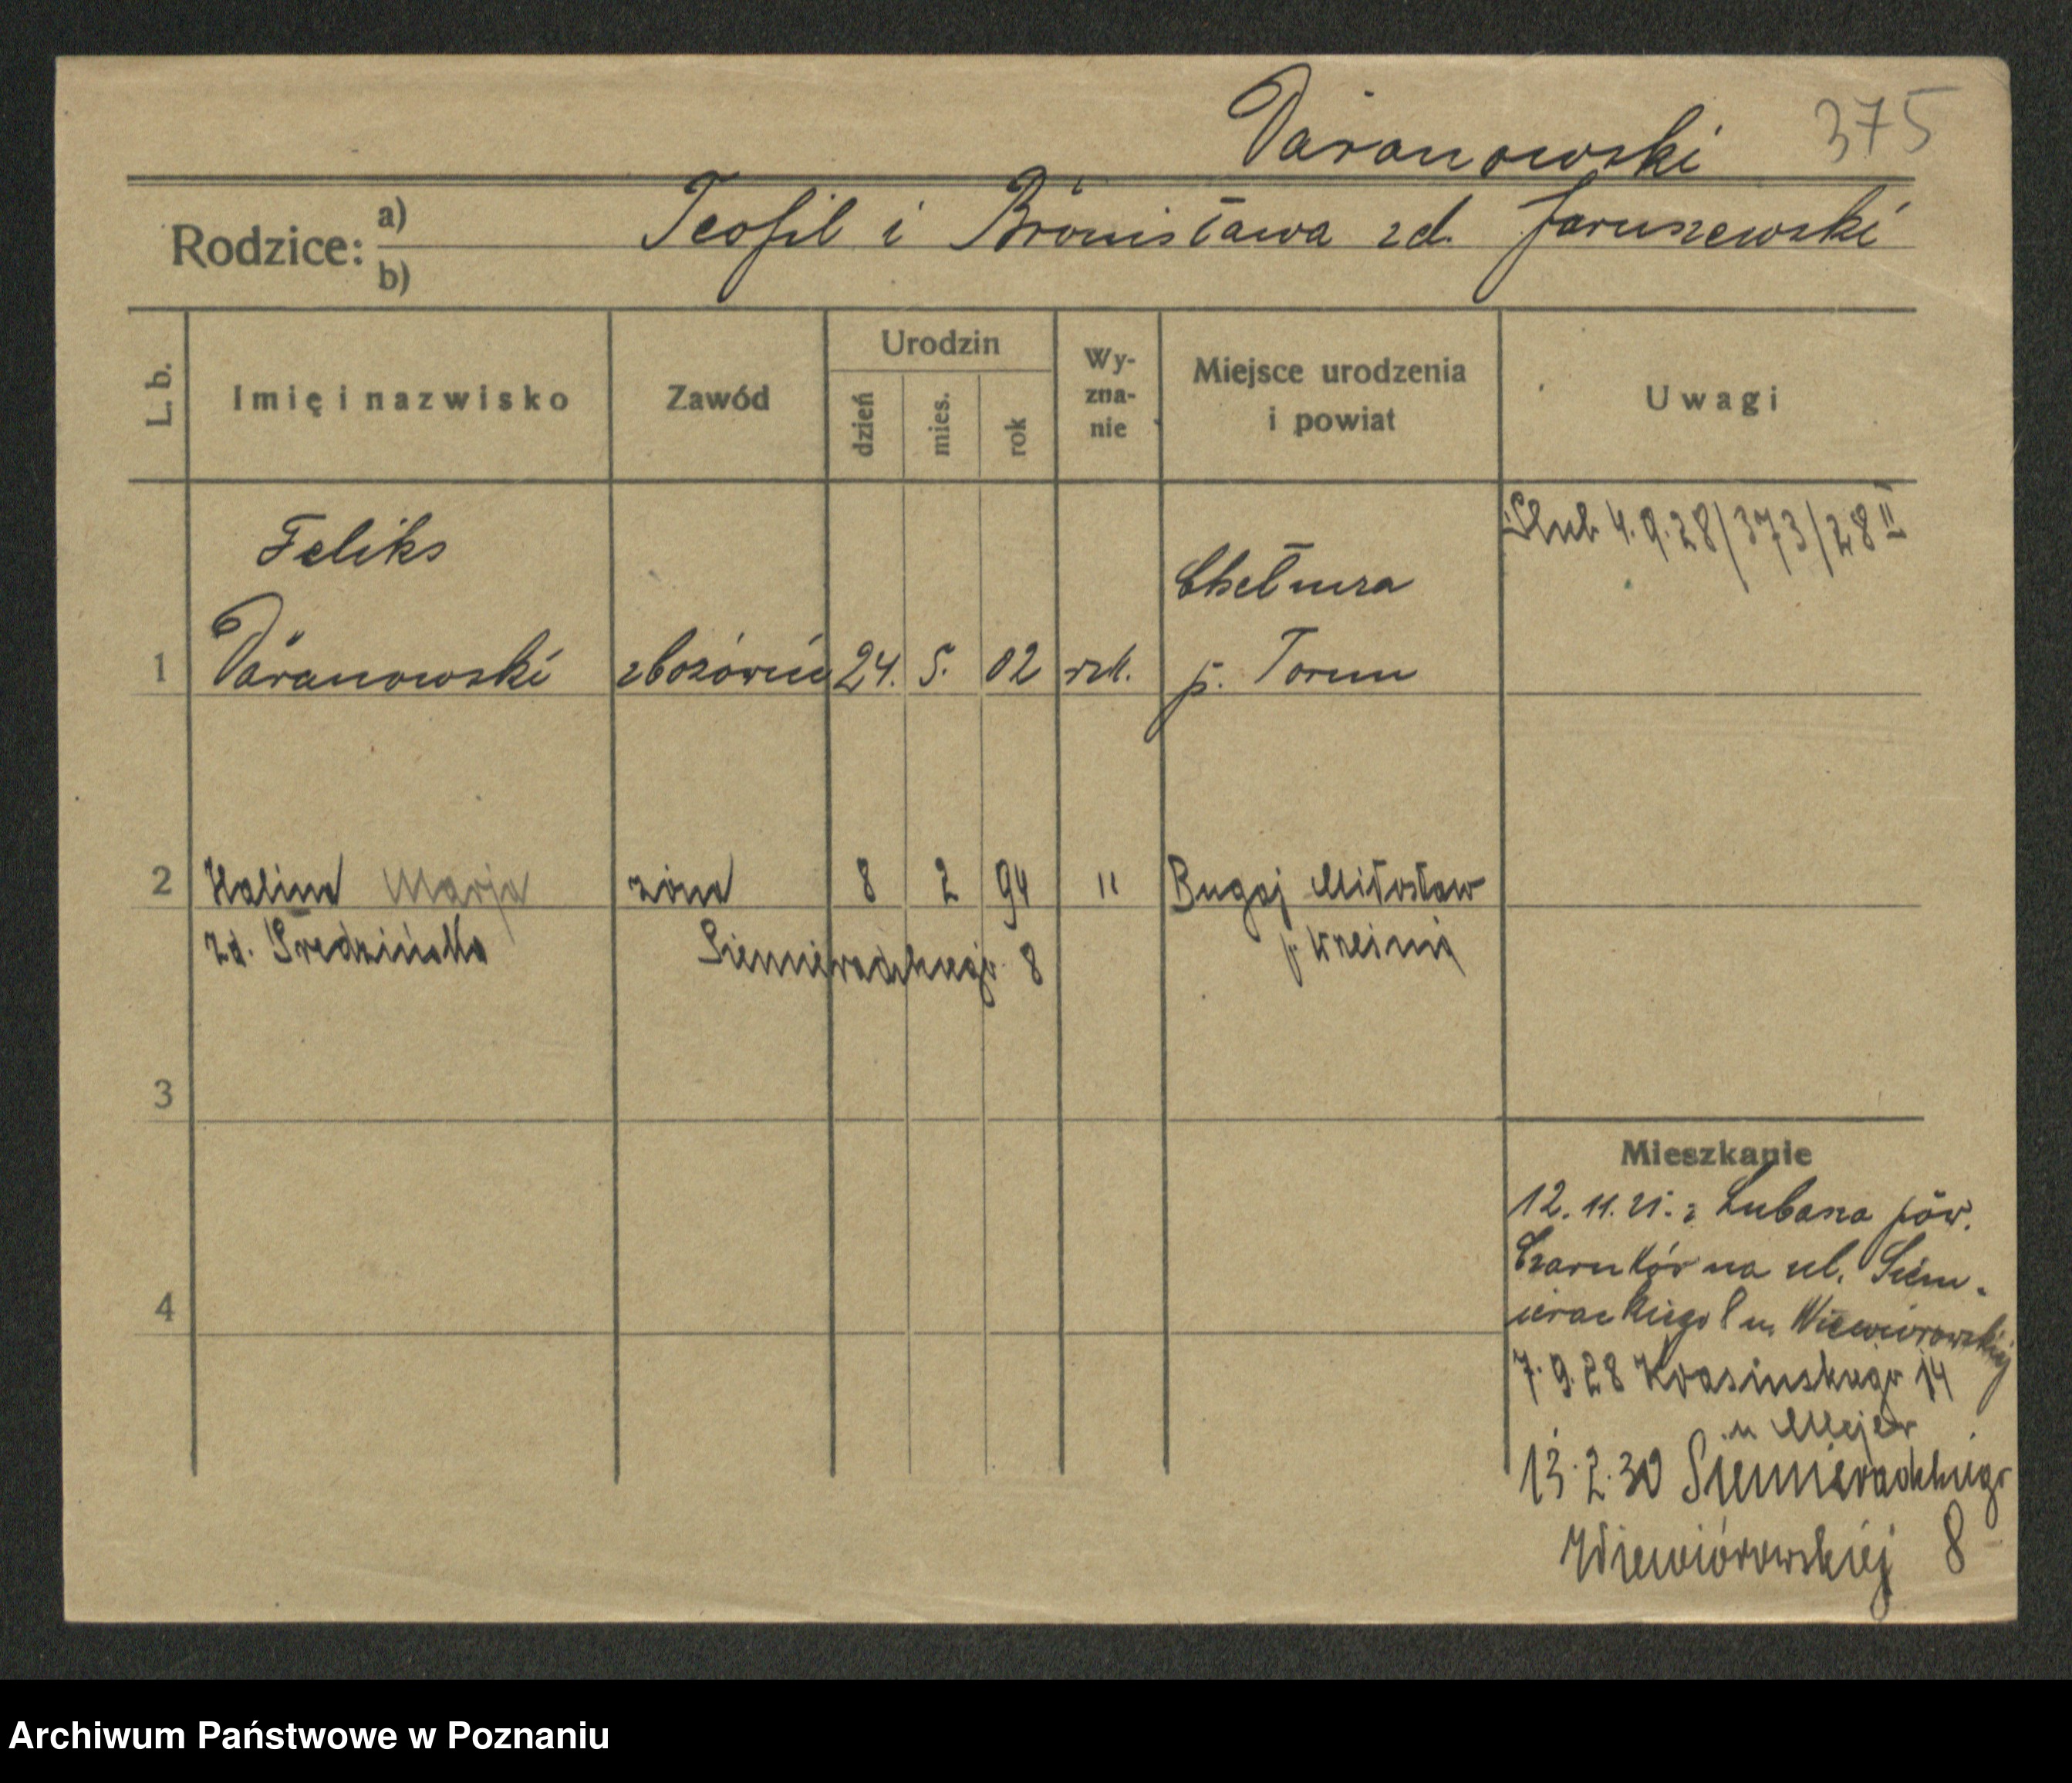 Varanowski 375
Rodzice: a) Teofil i Bronisława zd. Jaruszewski
b)
L. b. Imię i nazwisko Zawód Urodzin Wy-zna-nie Miejsce urodzenia i powiat Uwagi
dzień mies. rok
Ślub 4.9.28/373/28 II
Feliks Chełmza
1 Varanowski 24. 5. 02 rzk. p. Torun
2 Halina Marja żona 8 2 94 " Bugaj Miłosław
zd. Średzińska Siemieradzkiego 8 p.
3
Mieszkanie
12. 11. z Lubasza pow.
4 Czarnków na ul. Siem-
ieradzkiego 8 u. Wiewiorowskiej
7.9.28 Krasinskiego 14
u Mejer
13.2.30 Siemieradzkiego
Wiewiórowskiej 8
Archiwum Państwowe w Poznaniu